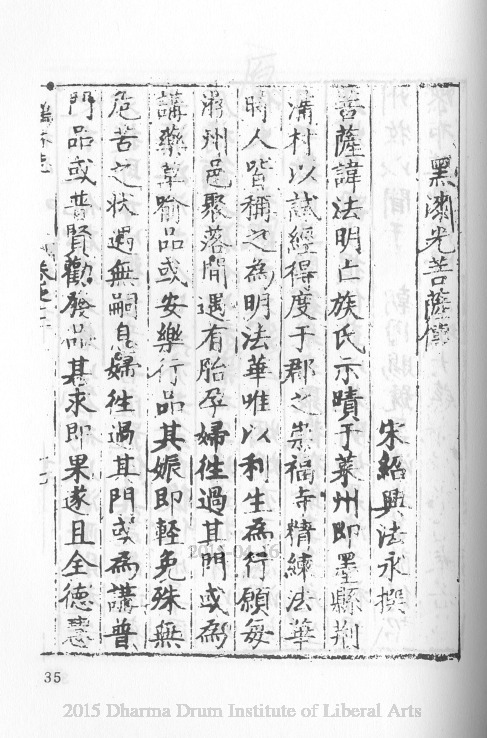 黑漆光菩薩傳
宋紹興法永撰
菩薩諱法明亡族氏示蹟于萊州即墨縣荆
溝村以試經得度于郡之崇福寺精練法華
時人皆稱之為明法華唯以利生為行願每
州邑聚落間遇有胎孕婦徃過其門或為
講藥草喻品或安樂行品其娠即輕免殊無
危苦之状遇無嗣息婦徃過其門或為講普
門品或普賢勸發品其求即果遂且全德慧
35
2015 Dharma Drum Institute of Liberal Arts